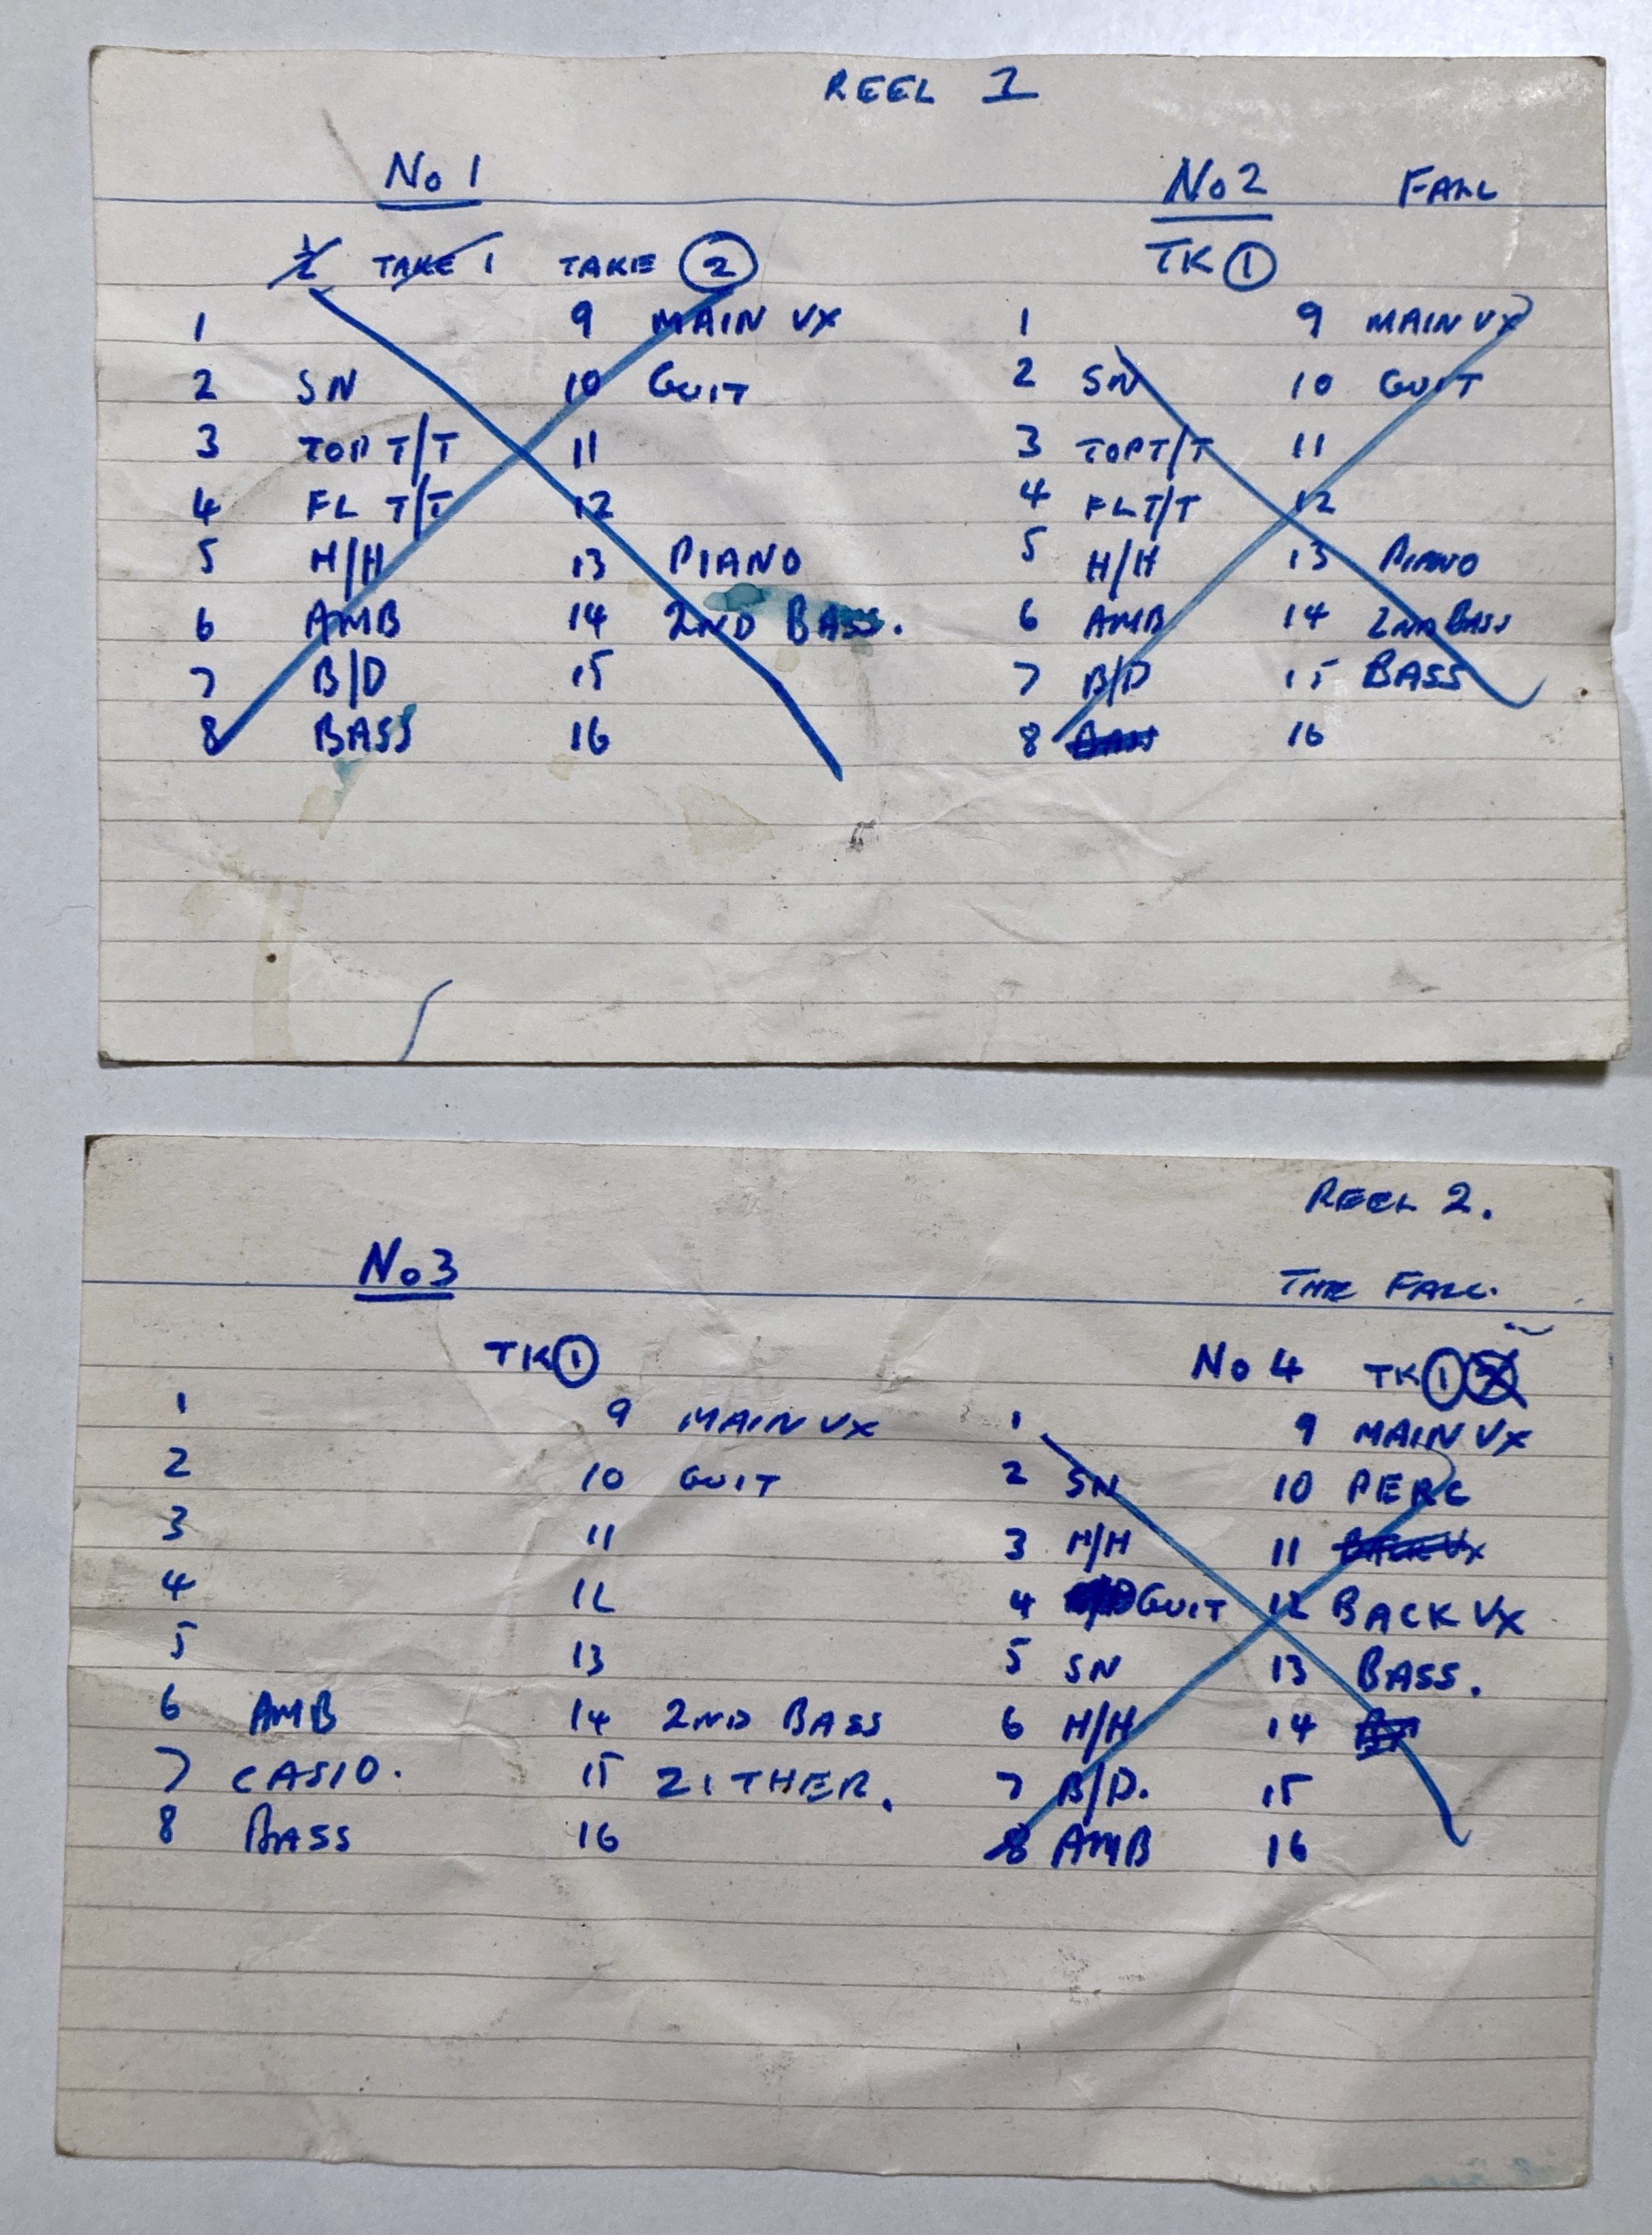 REEL 1
No 1
½ TAKE 1 TAKE 2
1 9 MAIN VX
2 SN 10 GUIT
3 TOP T/T 11
4 FL T/T 12
5 H/H 13 PIANO
6 AMB 14 2ND BASS.
7 B/D 15
8 BASS 16
No 2 FALL
TK 1
1 9 MAIN VX
2 SN 10 GUIT
3 TOP T/T 11
4 FL T/T 12
5 H/H 13 PIANO
6 AMB 14 2ND BASS
7 B/D 15 BASS
8 BASS 16
REEL 2.
THE FALL.
No 3
TK 1
1 9 MAIN VX
2 10 GUIT
3 11
4 12
5 13
6 AMB 14 2ND BASS
7 CASIO. 15 ZITHER.
8 BASS 16
No 4 TK 1
1 9 MAIN VX
2 SN 10 PERC
3 H/H 11 BACK VX
4 GUIT 12 BACK VX
5 SN 13 BASS.
6 H/H 14
7 B/D. 15
8 AMB 16